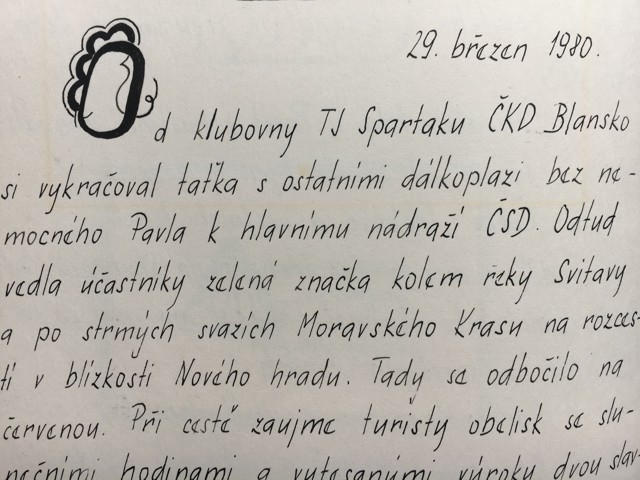 29. březen 1980.
Od klubovny TJ Spartaku ČKD Blansko
si vykračoval taťka s ostatními dálkoplazi bez ne-
mocného Pavla k hlavnímu nádraží ČSD. Odtud
vedla účastníky zelená značka kolem řeky Svitavy
a po strmých svazích Moravského Krasu na rozces-
tí v blízkosti Nového hradu. Tady se odbočilo na
červenou. Při cestě zaujme turisty obelisk se slu-
nečními hodinami a vytesanými výroky dvou slav-